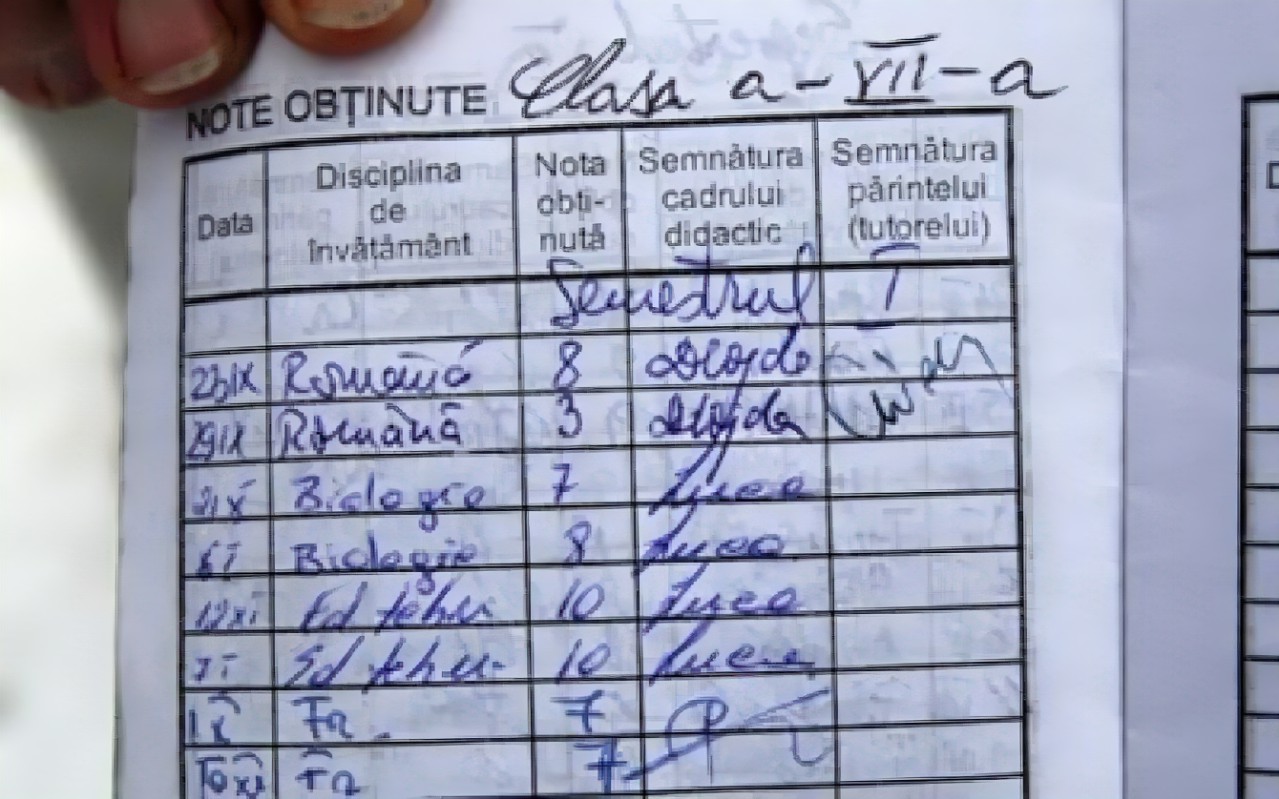 NOTE OBȚINUTE Clasa a-VII-a
Data Disciplina de învătământ Nota obți-nută Semnătura cadrului didactic Semnătura părintelui (tutorelui)
Semestrul I
23IX Română 8
29IX Română 3
Biologie 7 Lucea
Biologie 8 Lucea
Ed tehn. 10 Lucea
Ed tehn. 10 Lucea
IX Fr. 7
Fr 7